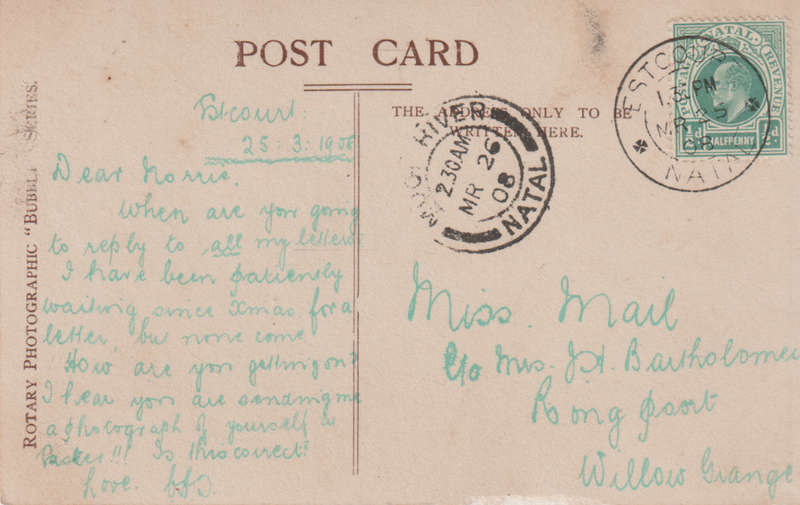 POST CARD
THE ADDRESS ONLY TO BE
WRITTEN HERE.
ROTARY PHOTOGRAPHIC "BUBBLE" SERIES.
Estcourt
25.3.1908
Dear Norrie,
When are you going
to reply to all my letters
I have been patiently
waiting since Xmas for a
letter, but none come
How are you getting on?
I hear you are sending me
a photograph of yourself in
!!! Is this correct?
Love.
MOOI RIVER
2.30 AM
MR 26
08
NATAL
ESTCOURT
PM
MR 25
08
NATAL
NATAL
REVENUE
HALFPENNY
½d
Miss. Mail
C/o Mrs. J.H. Bartholomew
Rong Poort
Willow Grange